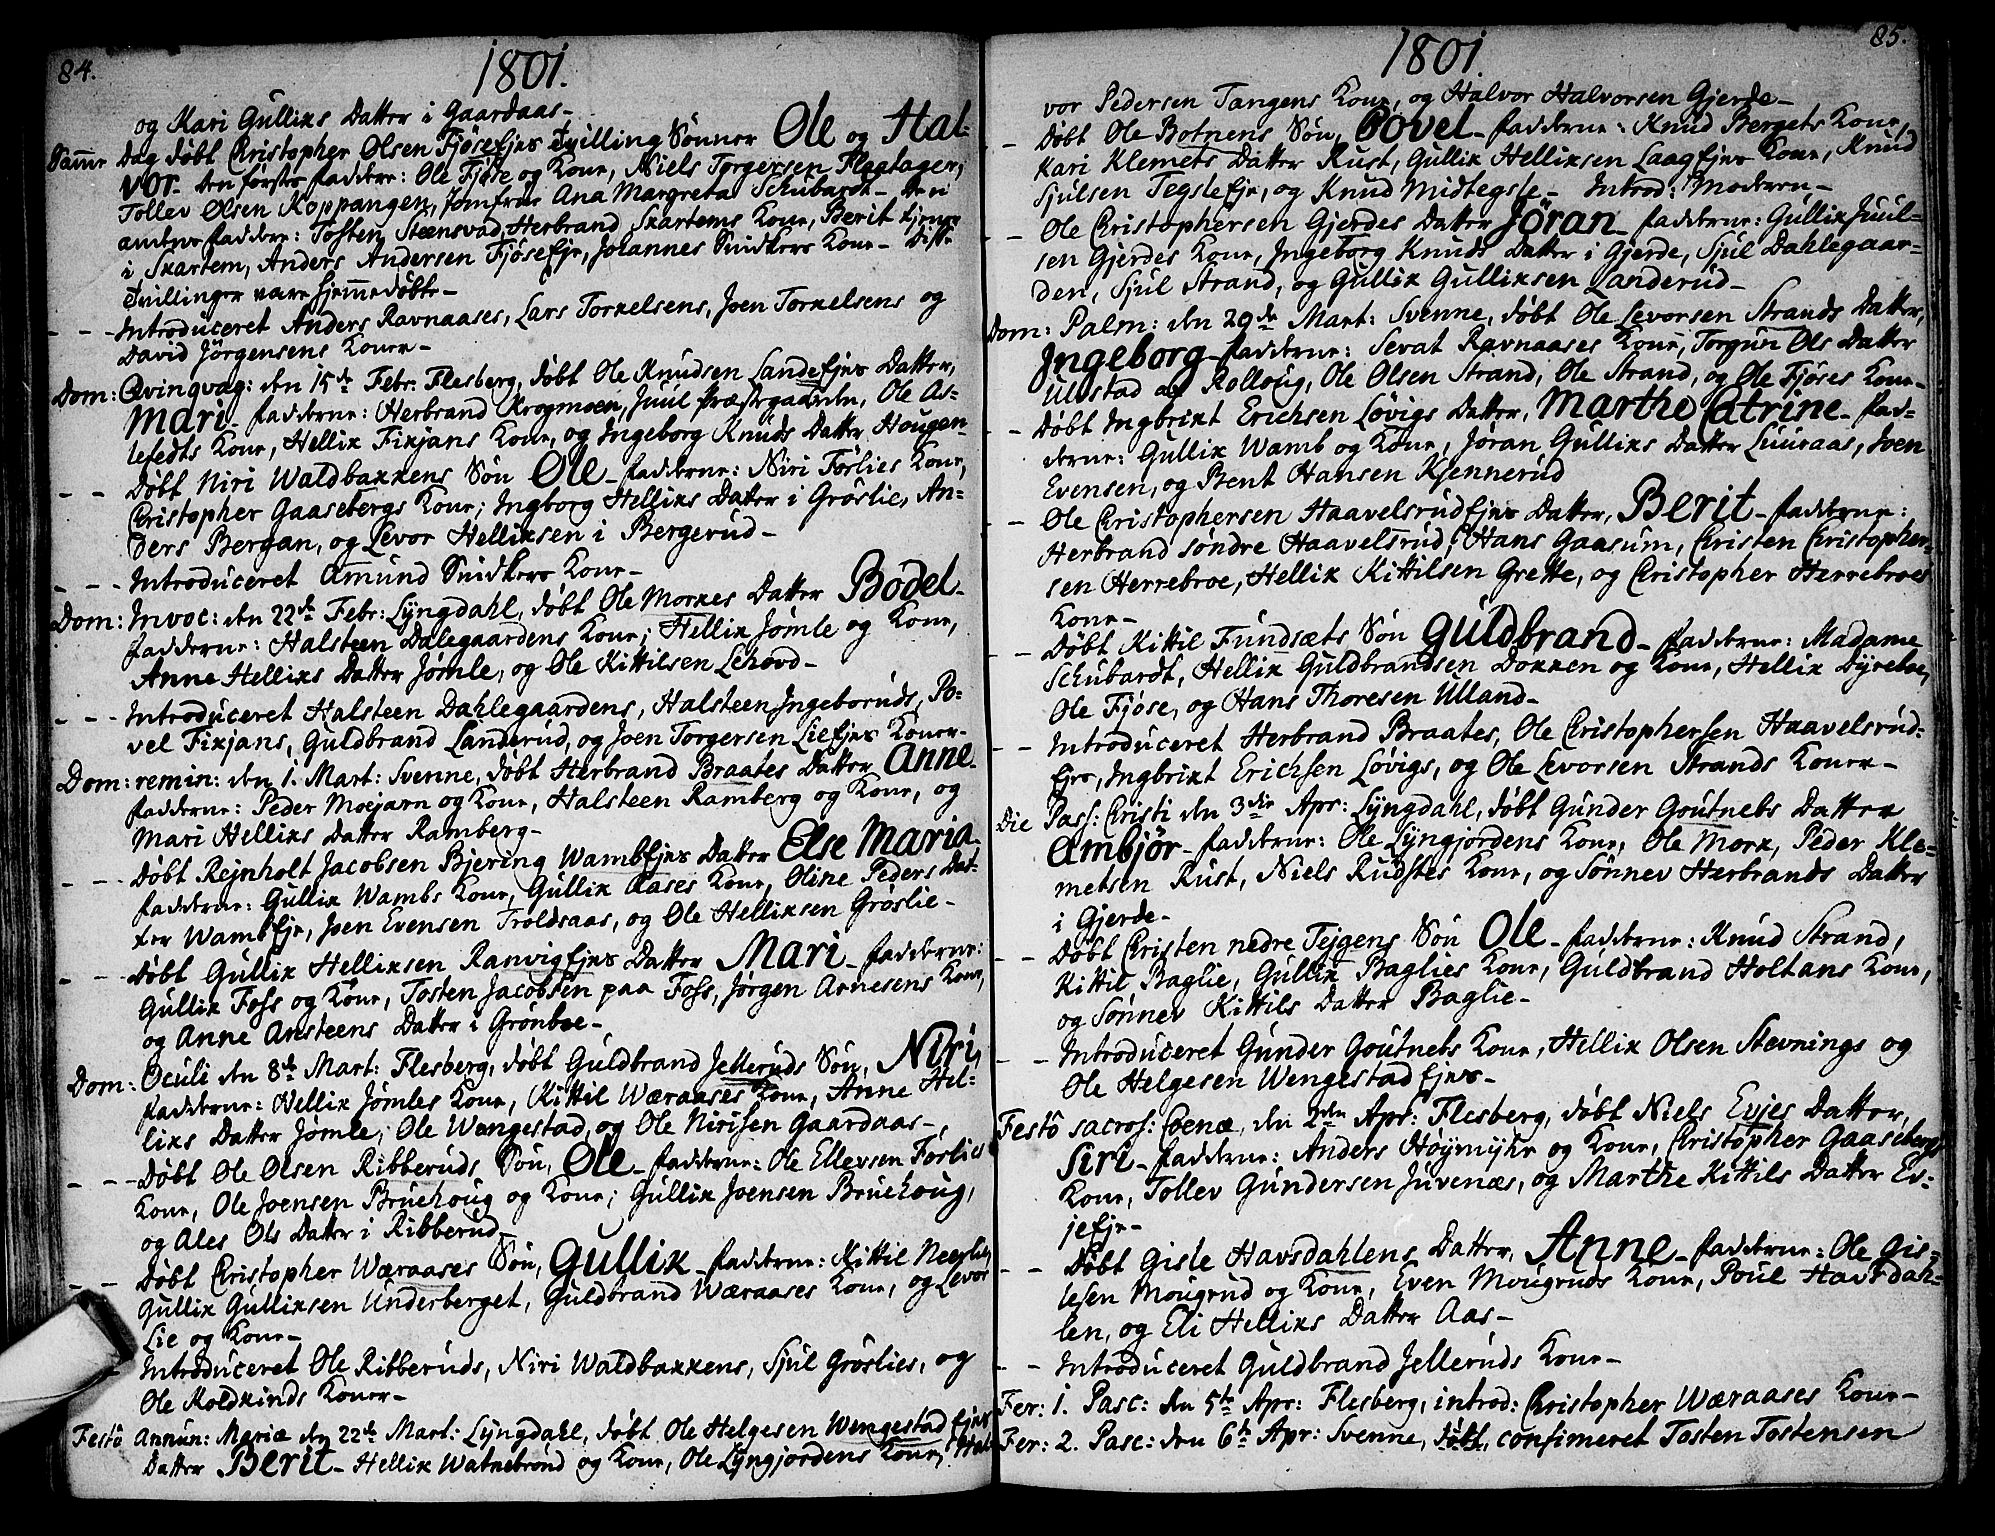 84.
1801.
og Kari Gullixs Datter i Gaardaas-
Samme Dag døbt Christopher Olsen Fjøse Ejes Tvilling Sønner Ole og Hal-
vor- den første fadderne: Ole Fjøse og Kone, Niels Torgersen Flaatager,
Tollev Olsen Koppangen, Jomfrue Ana Margreta Schubardt- den
andens fadderne: Tosten Steensvad, Herbrand Skartems Kone, Berit tjener
i Skartem, Anders Andersen FjøseEje, Johannes Snidkers Kone- disse
Tvillinger vare hjemmedøbte-
- - - Introduceret Anders Ravnaases, Lars Torkelsens, Joen Torkelsens og
David Jørgensens Koner-
Dom: Qvinqvag: den 15de Febr. Flesberg, døbt Ole Knudsen LandeEjes Datter,
Mari- fadderne: Herbrand Krogmoen, Juul Præstegaarden, Ole As-
lefedts Kone, Hellix Fixjans Kone, og Ingeborg Knuds Datter Hougen-
- - døbt Niri Waldbakkens Søn Ole- fadderne: Niri Førlies Kone,
Christopher Gaasebergs Kone; Ingborg Hellixs Datter i Grøslie, An-
ders Bergan, og Levor Hellixsen i Bergerud-
- - - Introduceret Amund Snidkers Kone-
Dom: Invoc: den 22de Febr: Lyngdahl, døbt Ole Morkes Datter Bodel-
fadderne: Halsteen Dalegaardens Kone; Hellix Jømle og Kone,
Anne Hellixs Datter Jømle, og Ole Kittilsen Lehovd-
- - - Introduceret Halsteen Dahlegaardens, Halsteen Ingeboruds, Po-
vel Fixjans, Guldbrand Landerud, og Joen Torgersen LieEjes Koner-
Dom: remin: den 1. Mart: Svenne, døbt Herbrand Braates Datter Anne-
fadderne: Peder Moejarn og Kone, Halsteen Ramberg og Kone, og
Mari Hellixs Datter Ramberg-
- - - døbt Rejnholt Jacobsen Bjering WambEjes Datter Else Maria-
fadderne: Gullix Wambs Kone, Gullix Aases Kone, Oline Peders Dat-
ter WambEje, Joen Evensen Troldsaas, og Ole Hellixsen Grøslie-
- - døbt Gullix Hellixsen RanvigEjes Datter Mari- fadderne:
Gullix Foss og Kone, Tosten Jacobsen paa Foss, Jørgen Arnesens Kone,
og Anne Ansteens Datter i Grønboe-
Dom: Oculi den 8de Mart: Flesberg, døbt Guldbrand Jelleruds Søn, Niri,
fadderne: Hellix Jømles Kone, Kittil Wæraases Kone, Anne Hel-
lixs Datter Jømle, Ole Wengestad, og Ole Nirisen Gaardaas-
- - - døbt Ole Olsen Ribberuds Søn, Ole- fadderne: Ole Ellevsen Førlies
Kone, Ole Joensen Bruehoug og Kone; Gullix Joensen Bruehoug,
og Ales Ols Datter i Ribberud-
- - døbt Christopher Wæraases Søn, Gullix- fadderne: Kittil Neerlie,
Gullix Gullixsen Underberget, Guldbrand Wæraases Kone, og Levor
Lie og Kone-
- Introduceret Ole Ribberuds, Niri Waldbakkens, Sjul Grøslies, og
Ole Koldkinds Koner-
Festo Annun: Mariæ den 22de Mart: Lyngdahl, døbt Ole Helgesen WengestadEjes
Datter Berit- Hellix Watnebrønd og Kone, Ole Lyngjordens Kone, Hal-
85.
1801.
vor Pedersen Tangens Kone, og Halvor Halvorsen Gjerde-
- døbt Ole Botnens Søn, Povel- fadderne: Knud Bergets Kone,
Kari Klemets Datter Rust, Gullix Hellixsen LaagEjes Kone, Knud
Sjulsen TegsleEje, og Knud Midtegsle- Introd: Moderen-
- - Ole Christophersen Gjerdes Datter Jöran- fadderne: Gullix Juul-
sen Gjerdes Kone, Ingeborg Knuds Datter i Gjerde, Sjul Dahlegaar-
den, Sjul Strand, og Gullix Gullixsen Landerud-
Dom: Palm: den 29de Mart: Svenne, døbt Ole Levorsen Strands Datter,
Ingeborg- fadderne: Sevat Ravnaases Kone, Torgun Ols Datter
Ulstad af Rolloug, Ole Olsen Strand, Ole Strand, og Ole Fjøses Kone-
- døbt Ingbrikt Erichsen Løvigs Datter, Marthe Catrine- fad-
derne: Gullix Wamb og Kone, Jöran Gullixs Datter Luuraas, Joen
Evensen, og Bent Hansen Kjennerud
- - Ole Christophersen HaavelsrudEjes Datter, Berit- fadderne:
Herbrand søndre Haavelsrud, Hans Gaasum, Christen Christopher-
sen Herrebroe, Hellix Kittilsen Grette, og Christopher Herrebroes
Kone-
- - døbt Kittil Fundsæts Søn Guldbrand- fadderne: Madame
Schubardt, Hellix Guldbrandsen Dokken og Kone, Hellix Dyreboe,
Ole Fjøse, og Hans Thoresen Ulland-
- - Introduceret Herbrand Braates, Ole Christophersen Haavelsrud-
Ejes, Ingbrikt Erichsen Løvigs, og Ole Levorsen Strands Koner-
Die Pass: Christi den 3die Apr: Lyngdahl, døbt Gunder Goutnebs Datter
Ambjör- fadderne: Ole Lyngjordens Kone, Ole Mork, Peder Kle-
metsen Rust, Niels Rudstes Kone, og Sønnev Herbrands Datter
i Gjerde-
- - døbt Christen nedre Tejgens Søn Ole- fadderne: Knud Strand,
Kittil Baglie, Gullix Baglies Kone, Guldbrand Holtans Kone,
og Sønnev Kittils Datter Baglie-
- - Introduceret Gunder Goutnebs Kone, Hellix Olsen Stevnings og
Ole Helgesen WengestadEjes-
Festo sacros: Coenæ, den 2den Apr: Flesberg, døbt Niels Evjes Datter,
Siri- fadderne: Anders Hoymyhr og Kone, Christopher Gaasebergs
Kone, Tollev Gundersen Juvenæs, og Marthe Kittils Datter Ev-
jeEje-
- - døbt Gisle Havsdahlens Datter, Anne- fadderne: Ole Gis-
lesen Mougrud og Kone, Even Mougruds Kone, Poul Havsdah-
len, og Eli Hellixs Datter Aas-
- - Introduceret Guldbrand Jelleruds Kone-
Fer: 1. Pasc: den 5te Apr: Flesberg, introd: Christopher Wæraases Kone-
Fer: 2. Pasc: den 6te Apr: Svenne, døbt, confimeret Tosten Tostensen